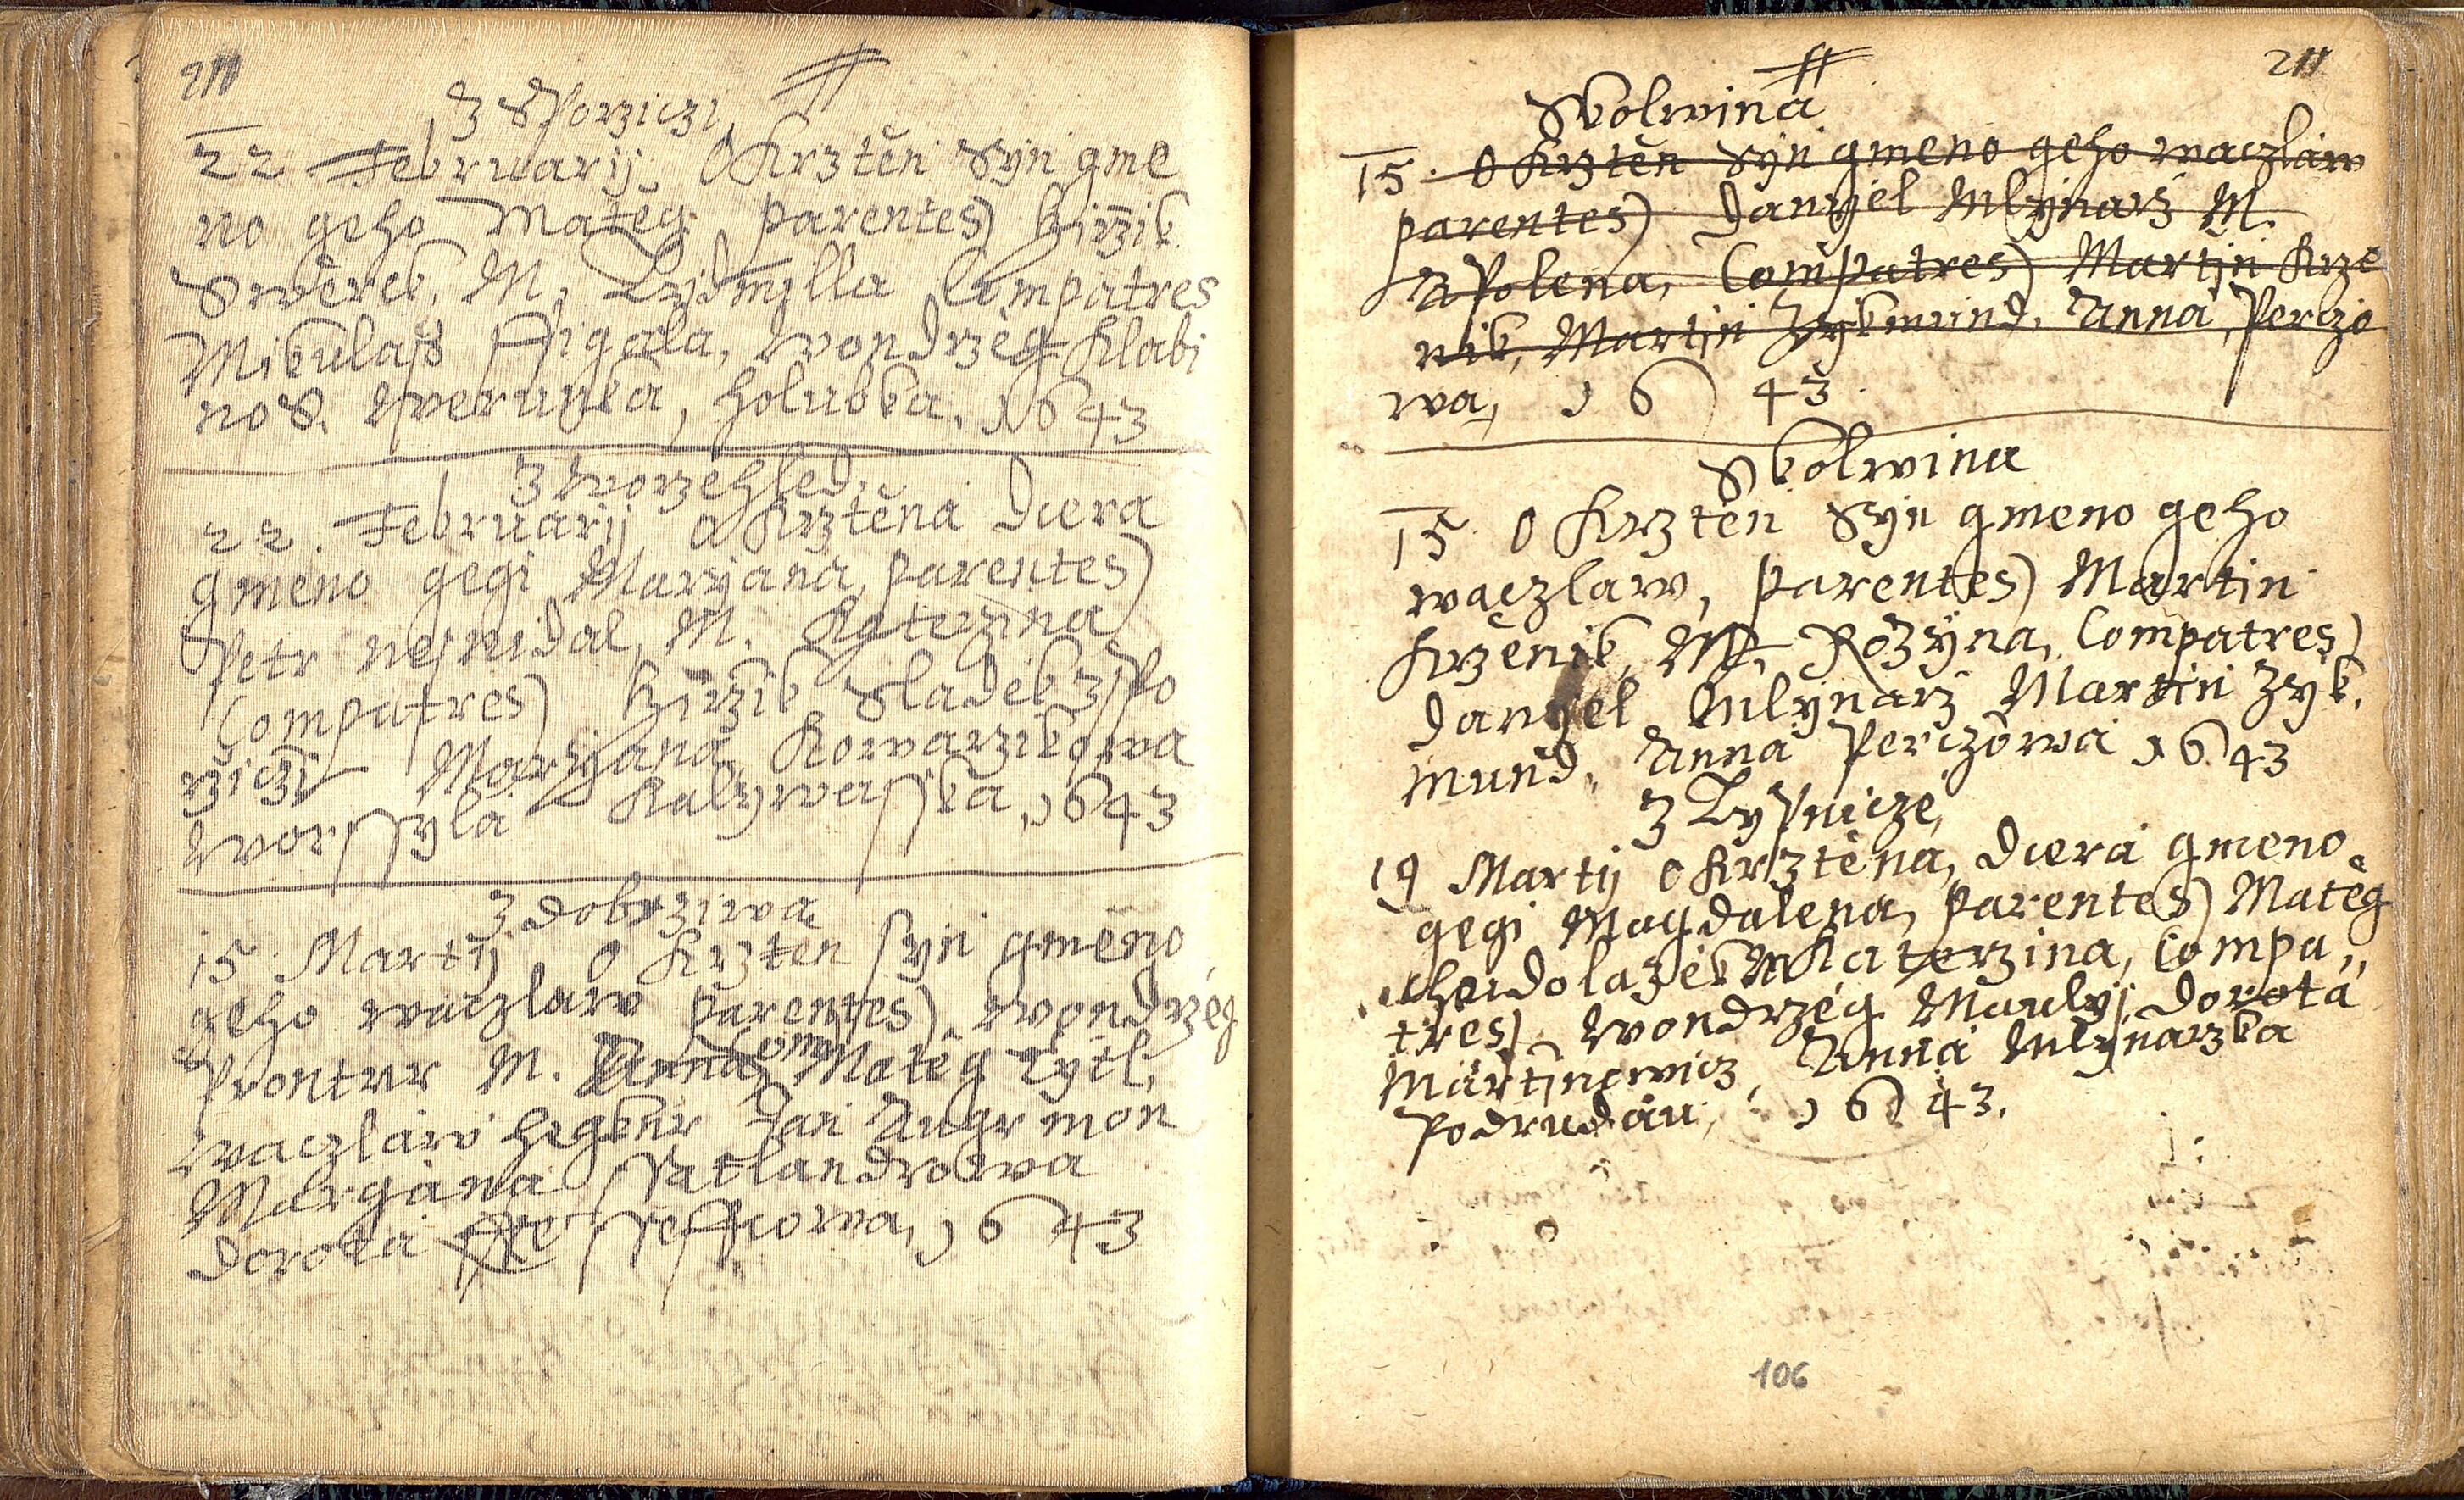 211
Z Sporziczi
22 Februarij O Krztěn Syn gme
no geho Matěg parentes) Girzik
Swěrek, M, Lydmilla Compatres
Mikulaß Ffigala, Wondrzeg Klabi
nos. Werunka, Holubka, 1643
Z Worzechled,
22. Februarij O Krztěna Dcera
gmeno gegi Maryana, parentes)
Petr nesnidal, M. Katerzina
Compatres) Girzik Sladek z Spo
rziczi Maryana Kowarzikowa
Worssyla Kalywasska, 1643
Z dobrziwa
15. Martij O Krztěn syn gmeno
geho waczlaw parentes) Wondrzeg
Prontur M. Anna Com Matěg Tytl,
waczlaw Hegkur Jan Augr mon
Margana Ssatlandrowa
dorota Sseffowa, 1643
211
Skolwina
15. O Krztěn Syn gmeno geho waczlaw
parentes) Danyel Mlynarz M.
Apolena, Compatres) Martin Krze
nik, Martin Zykmund, Anna Perczo
wa, 1643
Skolwina
15 O Krztěn Syn gmeno geho
waczlaw, parentes) Martin
Krzenik, M, Rozyna, Compatres)
Danyel Mlynarz Martin Zyk,
mund, Anna Perczowa 1643
Z Lypnicze,
19 Martij O Krztěna, Dcera gmeno
gegi Magdalena, parentes) Matěg
Chudolazek M Katerzina, Compa,,
tres) Wondrzeg Maulyj dorota
Martinowicz, Anna Mlynarzka
Podrudau, 1643.
106